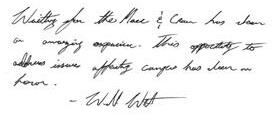 Writing for the Mace & Crown has been
an amazing experience. This opportunity to
address issues affecting campus has been an
honor.
- Will W